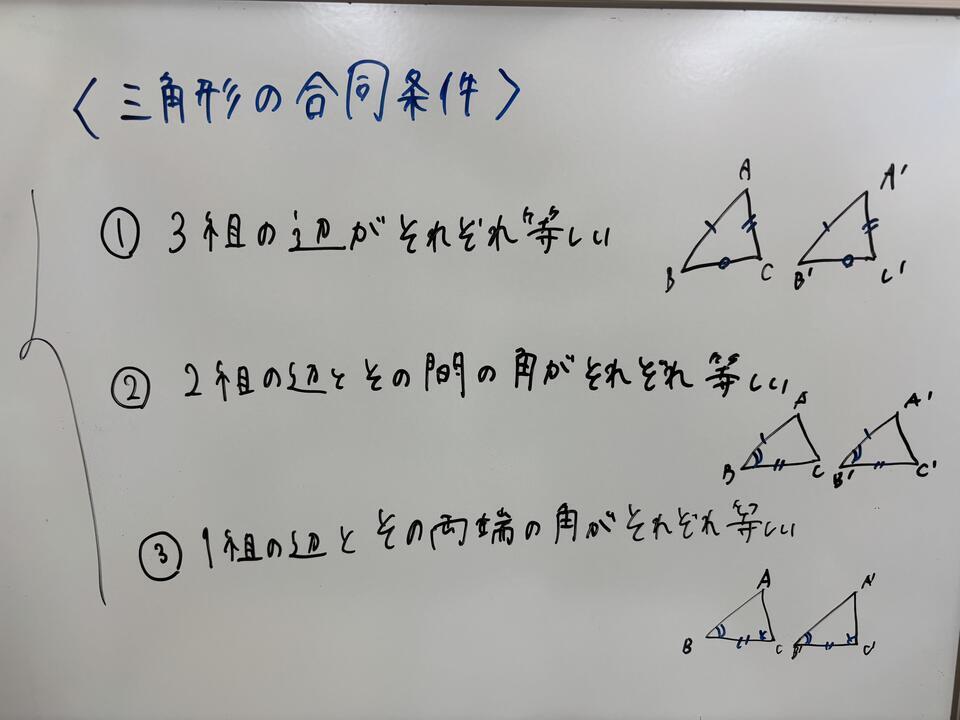 〈三角形の合同条件〉
① 3組の辺がそれぞれ等しい
A
A'
B
C
B'
C'
② 2組の辺とその間の角がそれぞれ等しい
A
A'
B
C
B'
C'
③ 1組の辺とその両端の角がそれぞれ等しい
A
A'
B
C
B'
C'